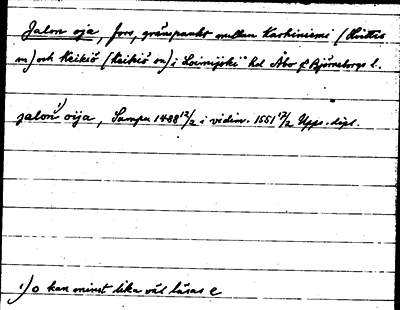 Jalon oja, fors, gränspunkt mellan Karhiniemi (Huittis
sn) och Keikiö (Keikiö sn) i Loimijoki Hd Åbo f. Björneborgs l.
jalon¹⁾ oija, Sampu 1488 12/2 i vidim. 1551 17/2 Upps. dipl.
¹) o kan minst lika väl läsas e